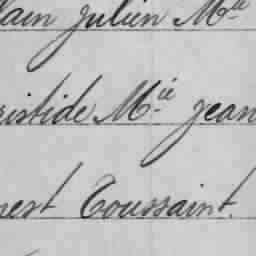 lain Julien Mie
ristide Mie jean
nest Toussaint.